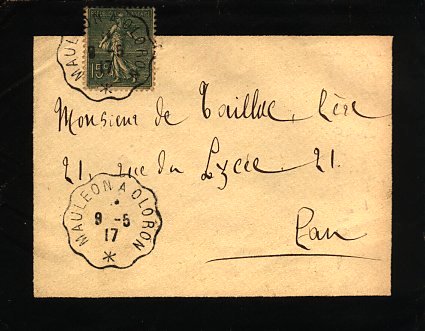 MAULEON A OLORON
9 -5
15c
Monsieur de
21, rue du Lycée, 21.
Pau
MAULEON A OLORON
9 -5
17
*